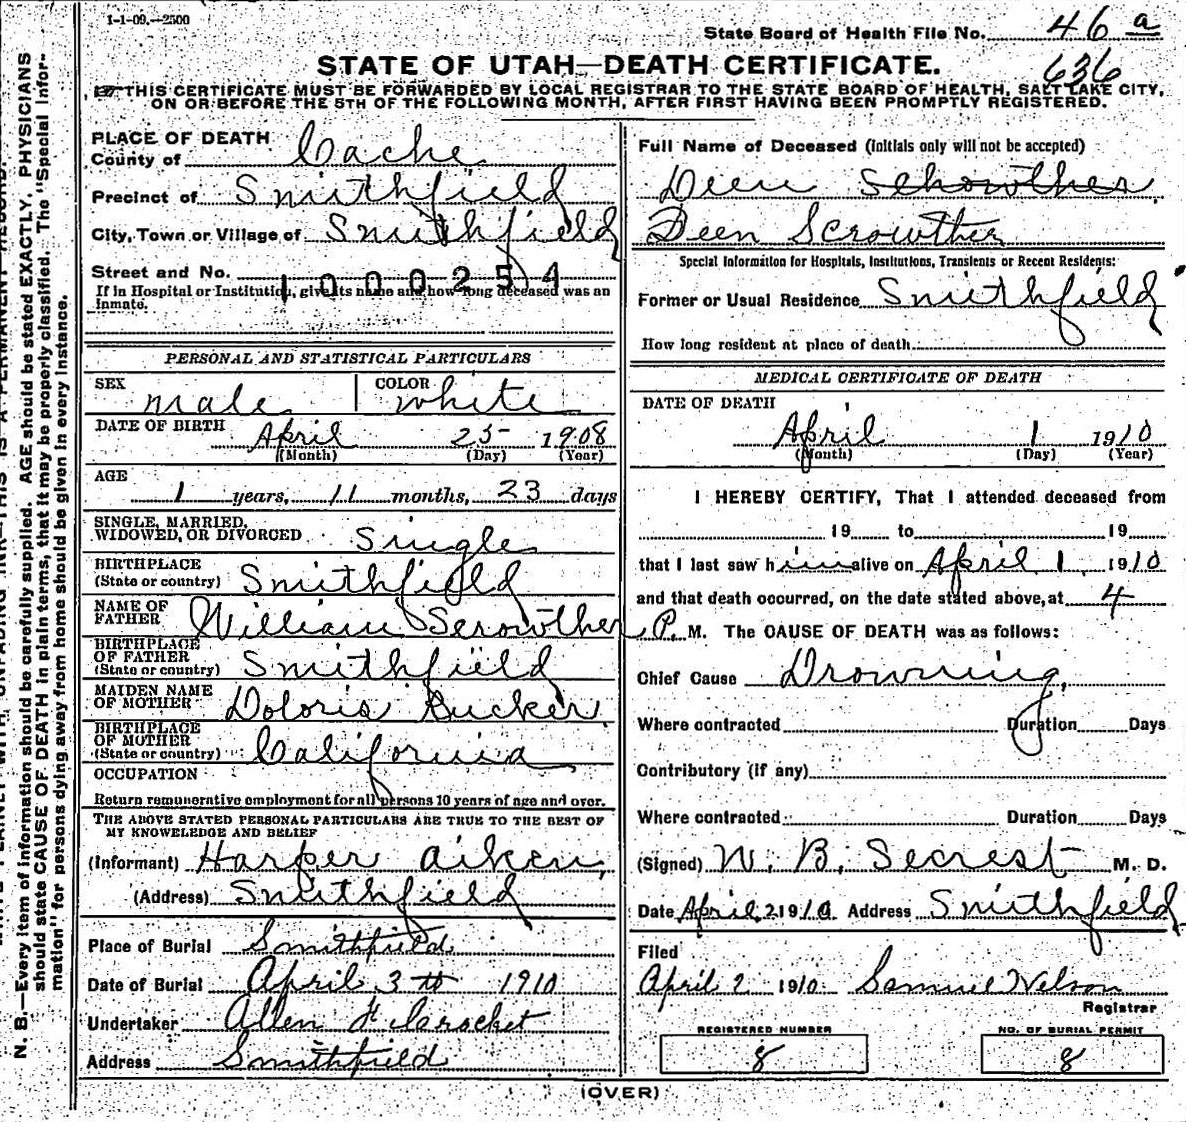 1-1-09.—2500
State Board of Health File No. 46 a
636
STATE OF UTAH—DEATH CERTIFICATE.
THIS CERTIFICATE MUST BE FORWARDED BY LOCAL REGISTRAR TO THE STATE BOARD OF HEALTH, SALT LAKE CITY,
ON OR BEFORE THE 5TH OF THE FOLLOWING MONTH, AFTER FIRST HAVING BEEN PROMPTLY REGISTERED.
PLACE OF DEATH
County of Cache
Precinct of Smithfield
City, Town or Village of Smithfield
Street and No.
1000254
If in Hospital or Institution, give its name and how long deceased was an
inmate.
PERSONAL AND STATISTICAL PARTICULARS
SEX male COLOR white
DATE OF BIRTH April 25 1908
(Month) (Day) (Year)
AGE
1 years, 11 months, 23 days
SINGLE, MARRIED,
WIDOWED, OR DIVORCED Single
BIRTHPLACE
(State or country) Smithfield
NAME OF
FATHER William Scrowther
BIRTHPLACE
OF FATHER
(State or country) Smithfield
MAIDEN NAME
OF MOTHER Doloris
BIRTHPLACE
OF MOTHER
(State or country) California
OCCUPATION
Return remunerative employment for all persons 10 years of age and over.
THE ABOVE STATED PERSONAL PARTICULARS ARE TRUE TO THE BEST OF
MY KNOWELEDGE AND BELIEF
(Informant) Harper Aiken,
(Address) Smithfield
Place of Burial Smithfield
Date of Burial April 3th 1910
Undertaker Allen
Address Smithfield
Full Name of Deceased (Initials only will not be accepted)
Deen Schowther
Deen Scrowther
Special Information for Hospitals, Institutions, Transients or Recent Residents:
Former or Usual Residence Smithfield
How long resident at place of death
MEDICAL CERTIFICATE OF DEATH
DATE OF DEATH
April 1 1910
(Month) (Day) (Year)
I HEREBY CERTIFY, That I attended deceased from
19 to 19
that I last saw him alive on April 1 1910
and that death occurred, on the date stated above, at 4
P. M. The CAUSE OF DEATH was as follows:
Chief Cause Drowning,
Where contracted Duration Days
Contributory (if any)
Where contracted Duration Days
(Signed) W. B. Secrest M. D.
Date April 2 1910 Address Smithfield
Filed
April 2 1910 Samuel Nelson
Registrar
REGISTERED NUMBER
8
NO. OF BURIAL PERMIT
8
(OVER)
N. B.—Every item of information should be carefully supplied. AGE should be stated EXACTLY. PHYSICIANS
should state CAUSE OF DEATH in plain terms, that it may be properly classified. The "Special Infor-
mation" for persons dying away from home should be given in every instance.